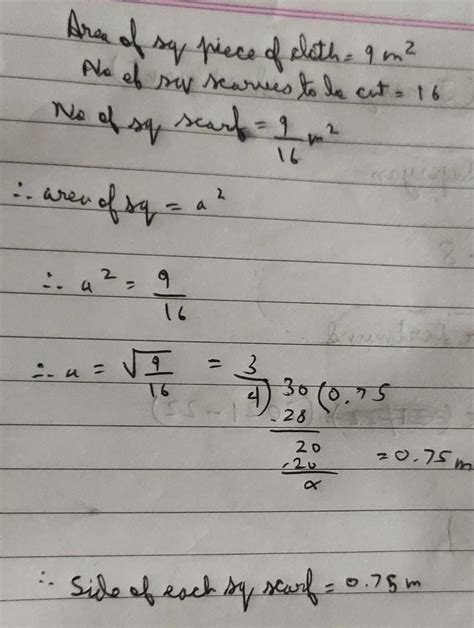 Area of sq piece of cloth = 9 m²
No of sq scarves to be cut = 16
No of sq scarf = 9/16 m²
∴ area of sq = a²
∴ a² = 9/16
∴ a = √9/16 = 3/4) 30 (0.75
-28
20
-20
x
= 0.75 m
∴ Side of each sq scarf = 0.75 m